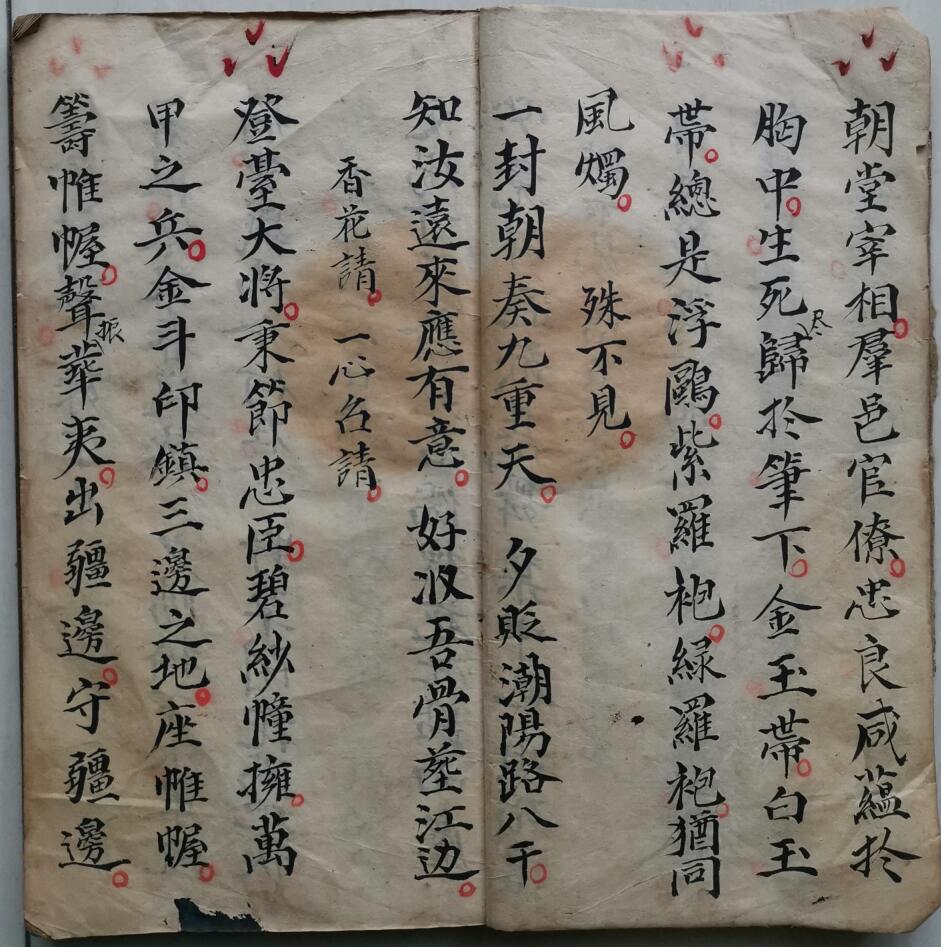 朝堂宰相。羣邑官僚。忠良咸蘊扵
胸中。生死尽歸扵筆下。金玉帶。白玉
帶。總是浮鷗。紫羅袍。緑羅袍。猶同
風燭。殊不見。
一封朝奏九重天。夕貶潮陽路八千。
知汝遠來應有意。好收吾骨塟江边。
香花請。一心召請。
登臺大将。秉節忠臣。碧紗幢擁。萬
甲之兵。金斗印鎮。三邊之地。座帷幄。
籌帷幄。聲振華夷。出疆邊。守疆邊。